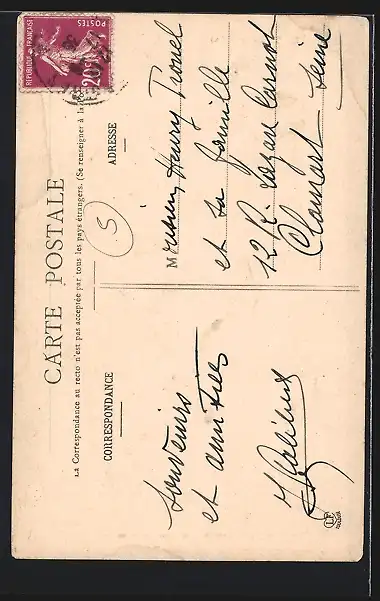 CARTE POSTALE
La Correspondance au recto n'est pas acceptée par tous les pays étrangers. (Se renseigner à la
CORRESPONDANCE
ADRESSE
REPUBLIQUE FRANÇAISE
POSTES
20c
5
Souvenirs
et amitiés
Monsieur Henry
et sa famille
12 R. Lazare Carnot
Clamart Seine